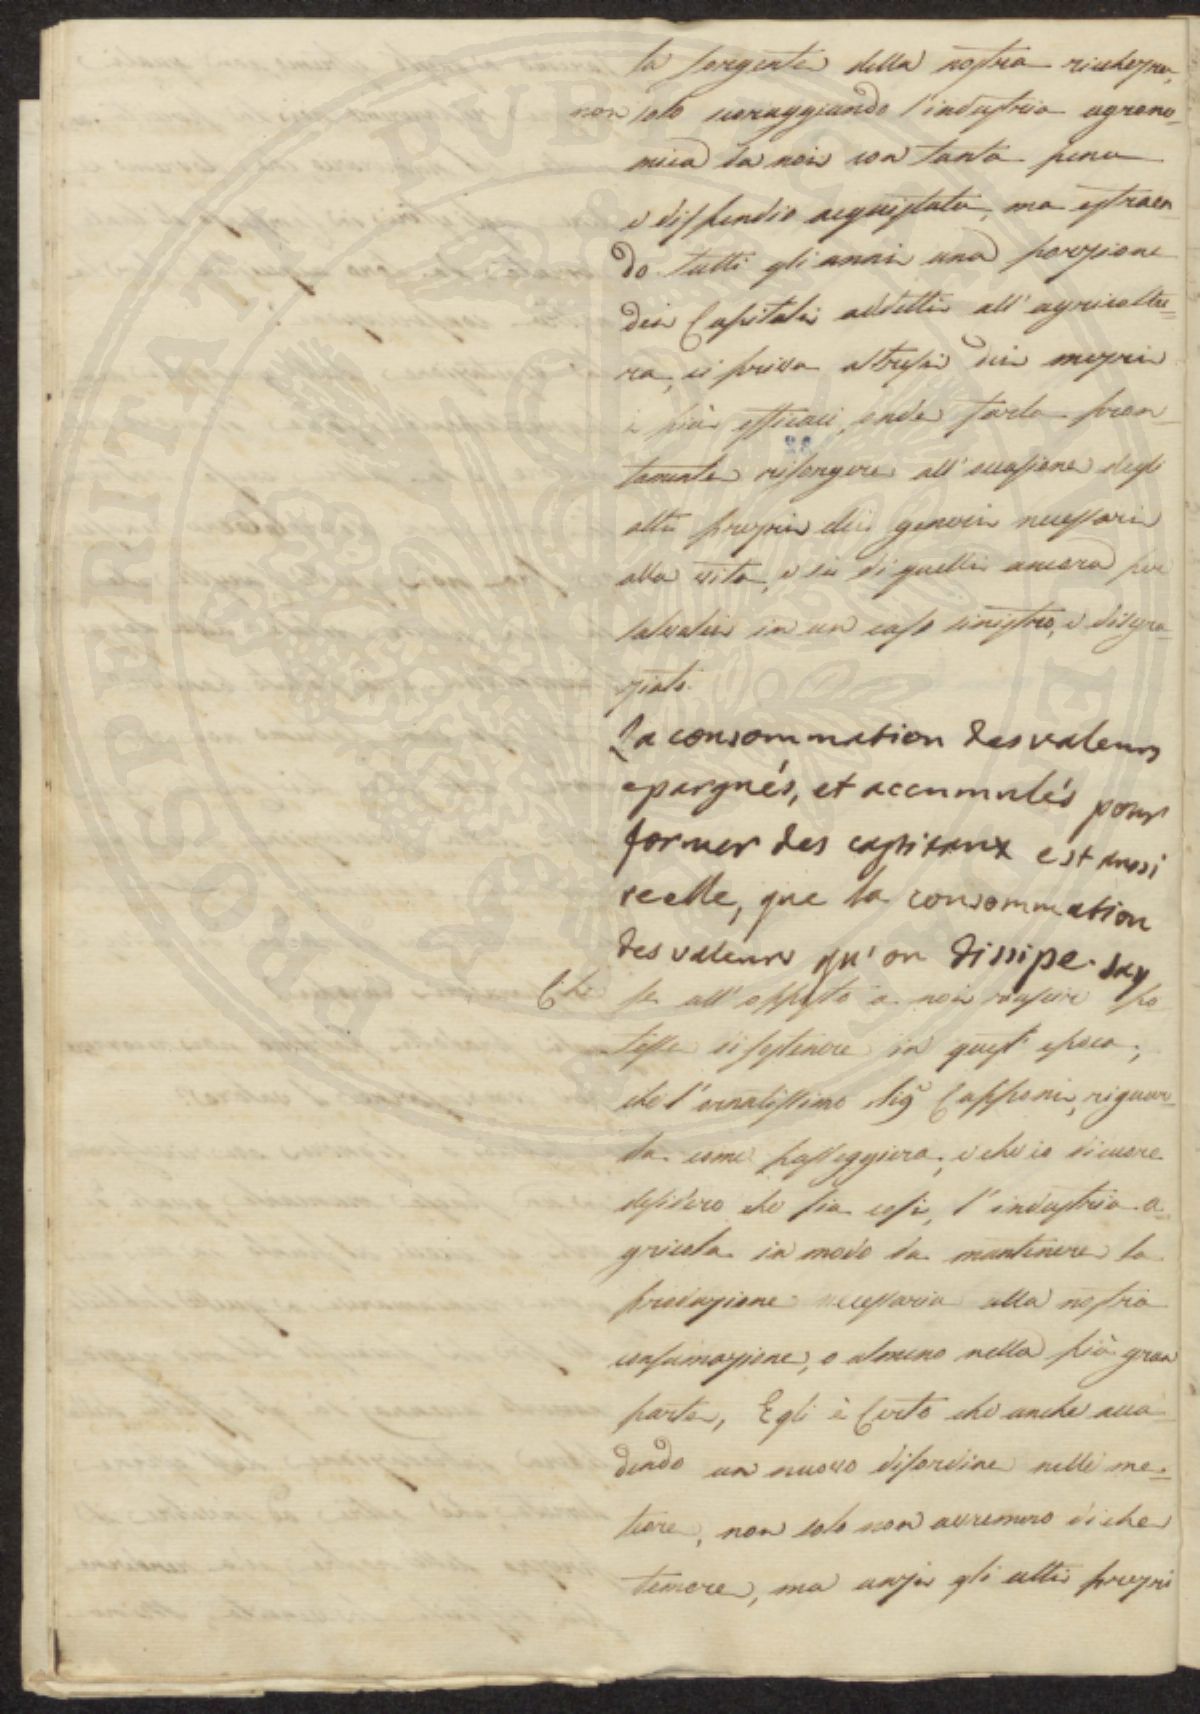 la sorgente della nostra ricchezza,
non solo scoraggiando l'industria agrono=
mica da noi con tanta pena
e dispendio acquistata, ma estraen
do tutti gli anni una porzione
dei Capitali addetti all'agricoltu=
ra, ci priva altresì dei mezzi
i più efficaci, onde farla pron
tamente risorgere all'occasione degli
alti prezzi dei generi necessari
alla vita, e di quelli ancora per
salvalci in un caso sinistro, e disgra=
ziato.
La consommation des valeurs
epargnés, et accumulés pour
former des capitaux est aussi
reelle, que la consommation
des valeurs qu'on dissipe. Say
Che se all'opposto a noi riuscire po
tesse di sostenere in quest'epoca;
che l'ornatissimo Sig.r Capponi, riguar=
da come passeggiera; e che io di cuore
desidero che sia così, l'industria a=
gricola in modo da mantenere la
produzione necessaria alla nostra
consumazione, o almeno nella più gran
parte, Egli è Certo che anche acca
dendo un nuovo disordine nelle me=
teore, non solo non avremmo di che
temere, ma anzi gli alti prezzi
PROSPERITATI PUBLICAE